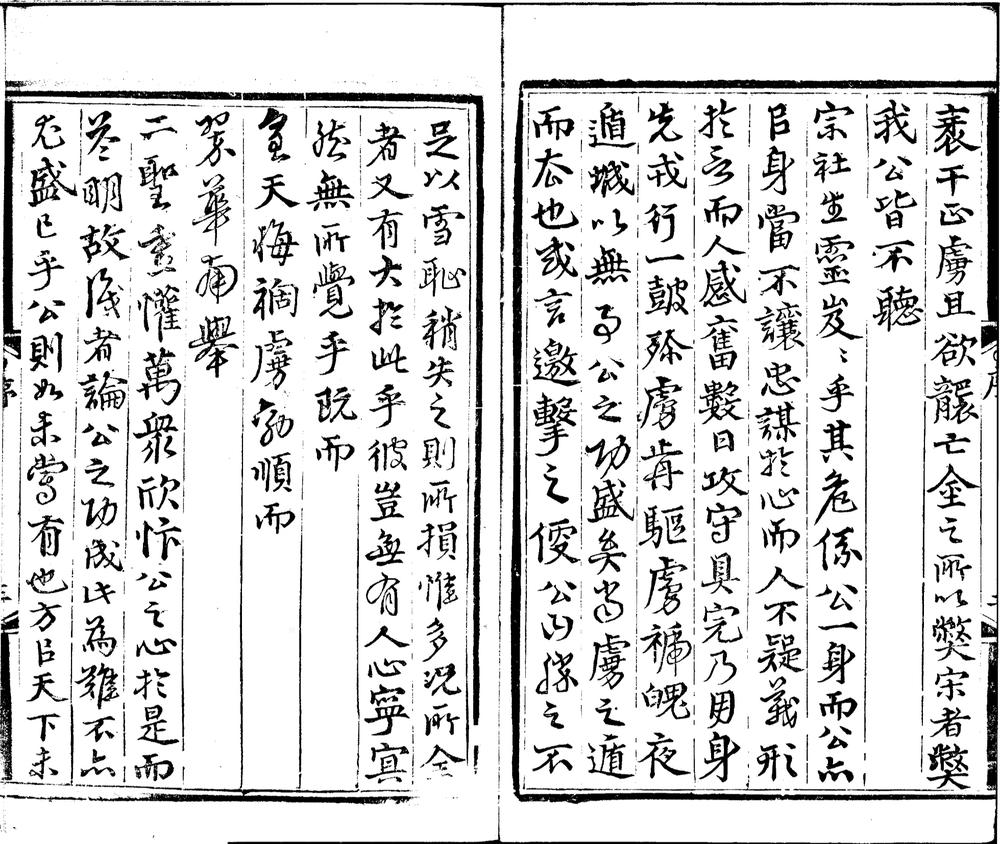 裘干正虜且欲襲亡金之所以獘宋者獘
我公皆不聽
宗社生靈岌〻乎其危係公一身而公亦
㠯身當不讓忠謀於心而人不疑義形
於言而人感奮數日攻守具完乃用身
先戎行一鼓殄虜再驅虜褫魄夜
遁城以無事公之功盛矣當虜之遁
而去也或言邀擊之便公曰勝之不
足以雪恥稍失之則所損惟多況所全
者又有大於此乎彼豈無有人心寧冥
然無所覺乎既而
皇天悔禍虜効順而
翠華南舉
二聖重懽萬衆欣忭公之心於是而
益明故後者論公之功成此為難不亦
尤盛㠯乎公則如未嘗有也方㠯天下未
序
序
二
三